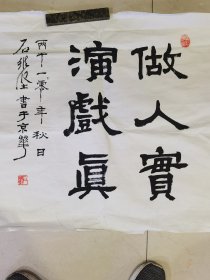 做人實
演戲真
丙午一零年秋日
石維堅書于京華